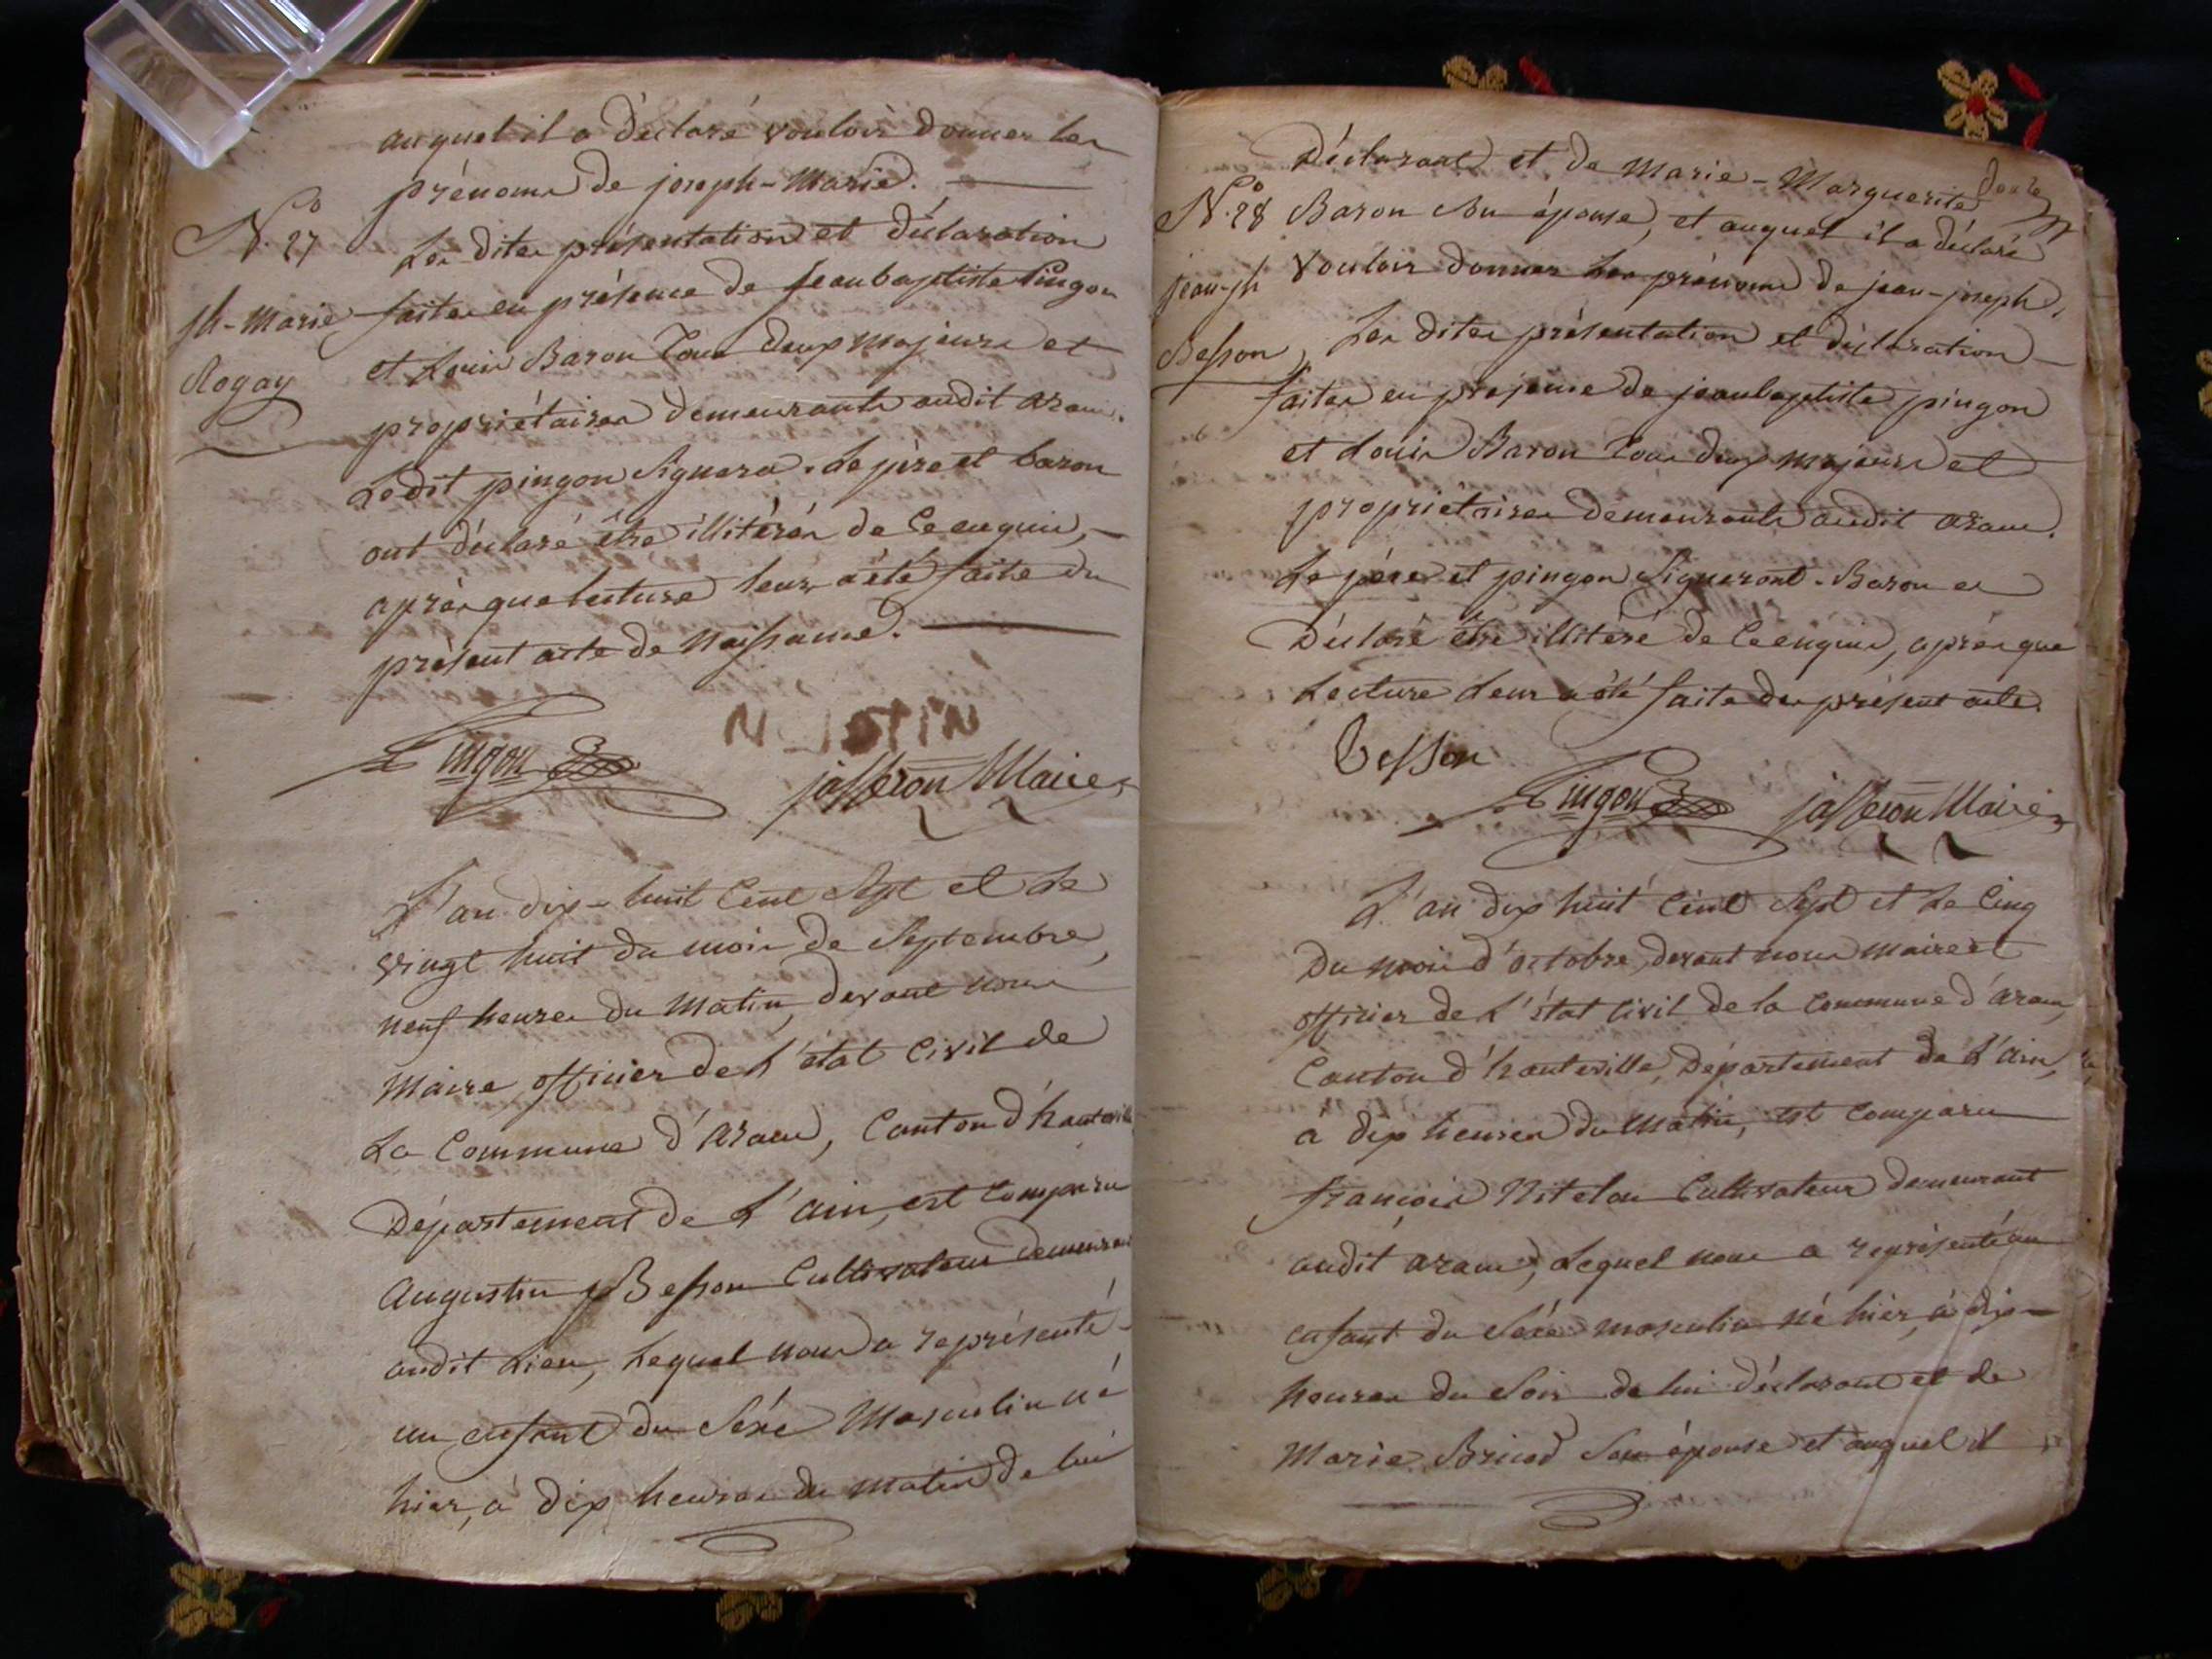 auquel il a déclaré vouloir donner les
prénoms de joseph-Marie.
N.º 27
jh-Marie
Rogay
Les dites présentation et déclaration
faites en présence de Jean baptiste Pingon
et Louis Baron tous deux majeurs et
propriétaires demeurants audit aranc.
Ledit pingon Signera. Le père et baron
ont déclaré être illitérés de ce enquis,
après que lecture leur a été faite du
présent acte de Naissance.
Pingon
jasseron Maire
L'an dix-huit Cent Sept et Le
vingt huit du mois de Septembre,
neuf heures du Matin, devant nous
Maire officier de L'état Civil de
La Commune d'Aranc, Canton d'hauteville
Département de L'ain, est comparu
Augustin Besson Cultivateur demeurant
audit Lieu, Lequel nous a représenté
un enfant du Séxe Masculin né
hier, à dix heures du Matin de lui
Déclarant et de Marie-Marguerite
N.º 28
jean-jh
Besson
Baron Son épouse, et auquel il a déclaré
Vouloir donner Les prénoms de jean-joseph.
Les dites présentation et déclaration
faites en présence de jean baptiste pingon
et Louis Baron tous deux majeurs et
propriétaires demeurants audit aranc.
Le père et pingon Signeront. Baron a
Déclaré être illitéré de Ce enquis, après que
Lecture Leur a été faite du présent acte.
Besson
Pingon
jasseron Maire
L'an dix huit Cent Sept et Le Cinq
Du mois d'octobre, devant nous maire et
officier de L'état Civil de la Commune d'aranc,
Canton d'hauteville, Département de L'ain,
à dix heures du Matin, est Comparu
françois Cultivateur demeurant
audit aranc, Lequel nous a représenté un
enfant du Séxe masculin né hier, à dix
heures du Soir de lui déclarant et de
Marie Son épouse et auquel il